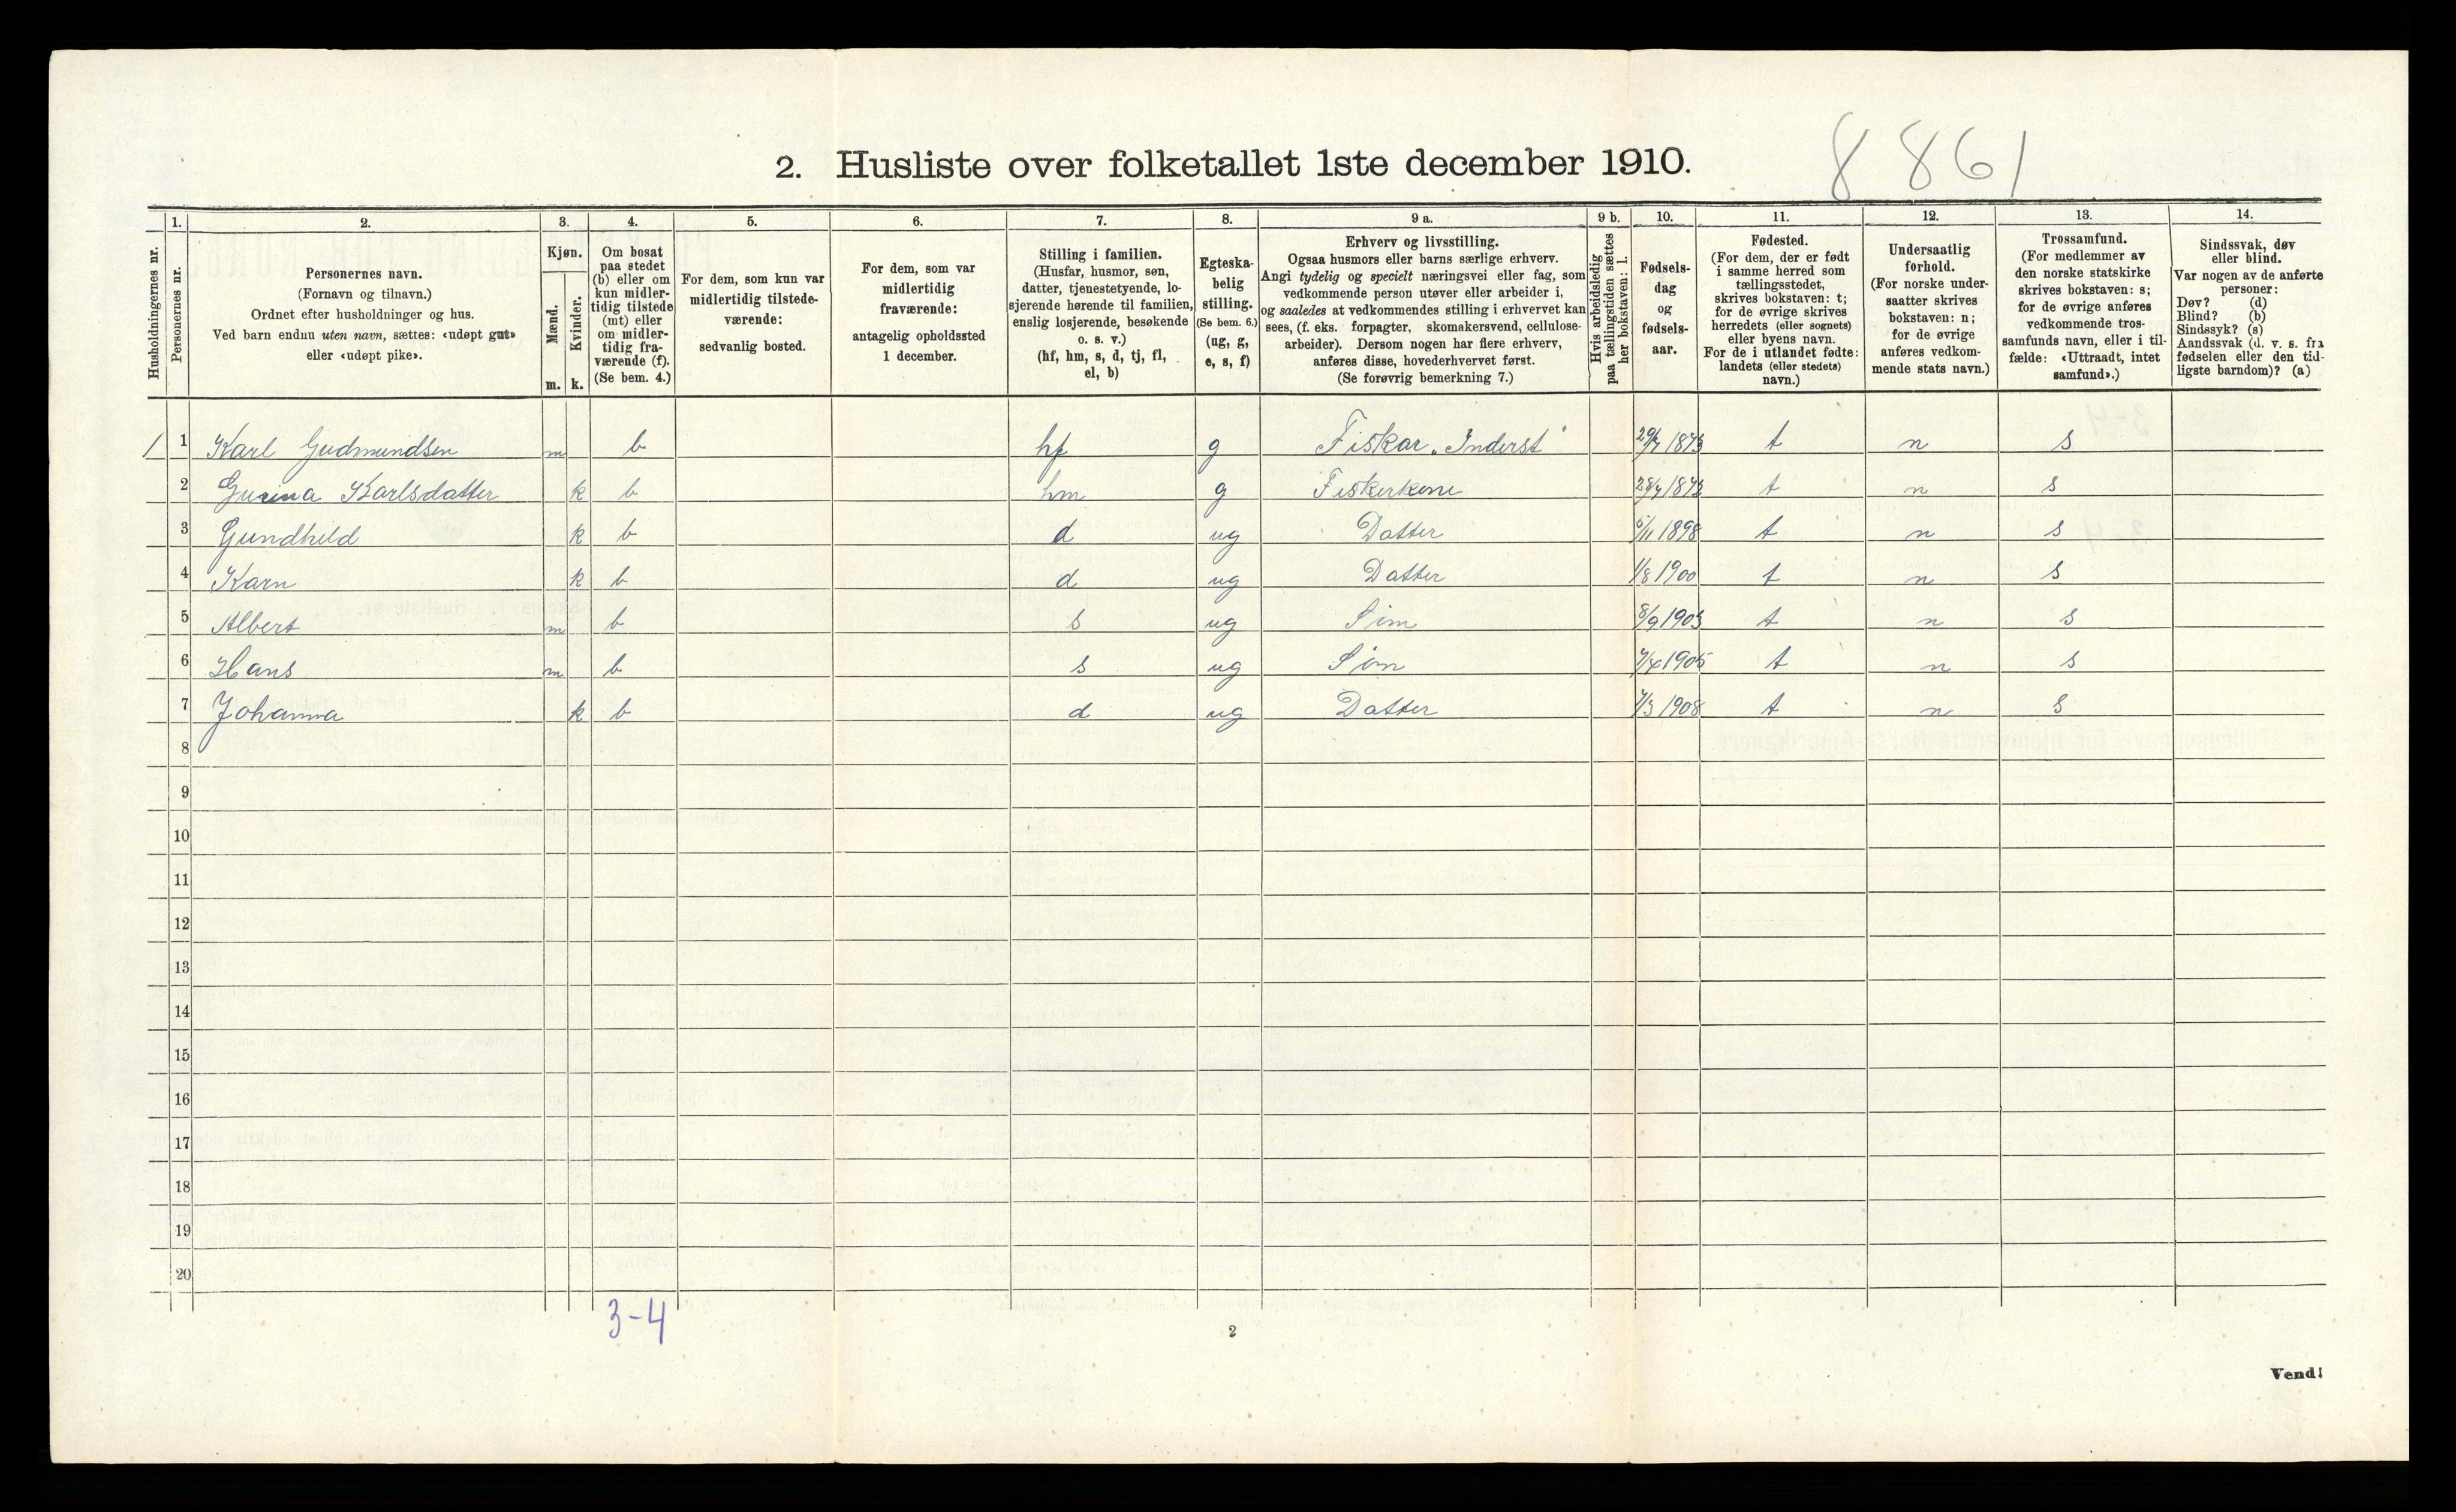 8 861
2. Husliste over folketallet 1ste december 1910.
Husholdningernes nr.
1. Personernes nr.
2. Personernes navn. (Fornavn og tilnavn.) Ordnet efter husholdninger og hus. Ved barn endnu uten navn, sættes: «udøpt gut» eller «udøpt pike».
3. Kjøn. Mænd. m. Kvinder. k.
4. Om bosat paa stedet (b) eller om kun midlertidig tilstede (mt) eller om midlertidig fraværende (f). (Se bem. 4.)
5. For dem, som kun var midlertidig tilstedeværende: sedvanlig bosted.
6. For dem, som var midlertidig fraværende: antagelig opholdssted 1 december.
7. Stilling i familien. (Husfar, husmor, søn, datter, tjenestetyende, losjerende hørende til familien, enslig losjerende, besøkende o. s. v.) (hf, hm, s, d, tj, fl, el, b)
8. Egteskabelig stilling. (Se bem. 6.) (ug, g, e, s, f)
9 a. Erhverv og livsstilling. Ogsaa husmors eller barns særlige erhverv. Angi tydelig og specielt næringsvei eller fag, som vedkommende person utøver eller arbeider i, og saaledes at vedkommendes stilling i erhvervet kan sees, (f. eks. forpagter, skomakersvend, cellulosearbeider). Dersom nogen har flere erhverv, anføres disse, hovederhvervet først. (Se forøvrig bemerkning 7.)
9 b. Hvis arbeidsledig paa tællingstiden sættes her bokstaven: l.
10. Fødselsdag og fødselsaar.
11. Fødested. (For dem, der er født i samme herred som tællingsstedet, skrives bokstaven: t; for de øvrige skrives herredets (eller sognets) eller byens navn. For de i utlandet fødte: landets (eller stedets) navn.)
12. Undersaatlig forhold. (For norske undersaatter skrives bokstaven: n; for de øvrige anføres vedkommende stats navn.)
13. Trossamfund. (For medlemmer av den norske statskirke skrives bokstaven: s; for de øvrige anføres vedkommende trossamfunds navn, eller i tilfælde: «Uttraadt, intet samfund».)
14. Sindssvak, døv eller blind. Var nogen av de anførte personer: Døv? (d) Blind? (b) Sindssyk? (s) Aandssvak (d. v. s. fra fødselen eller den tidligste barndom)? (a)
1 1 Karl Gudmundsen m b hf g Fiskar „Inderst" t n s
2 Gurina Karlsdatter k b hm g Fiskerkone t n s
3 Gundhild k b d ug Datter 5/11 1898 t n s
4 Karn k b d ug Datter 1/8 1900 t n s
5 Albert m b s ug Søn 8/9 1903 t n s
6 Hans m b s ug Søn 7/4 1905 t n s
7 Johanna k b d ug Datter 7/3 1908 t n s
8
9
10
11
12
13
14
15
16
17
18
19
20
3-4
2
Vend!